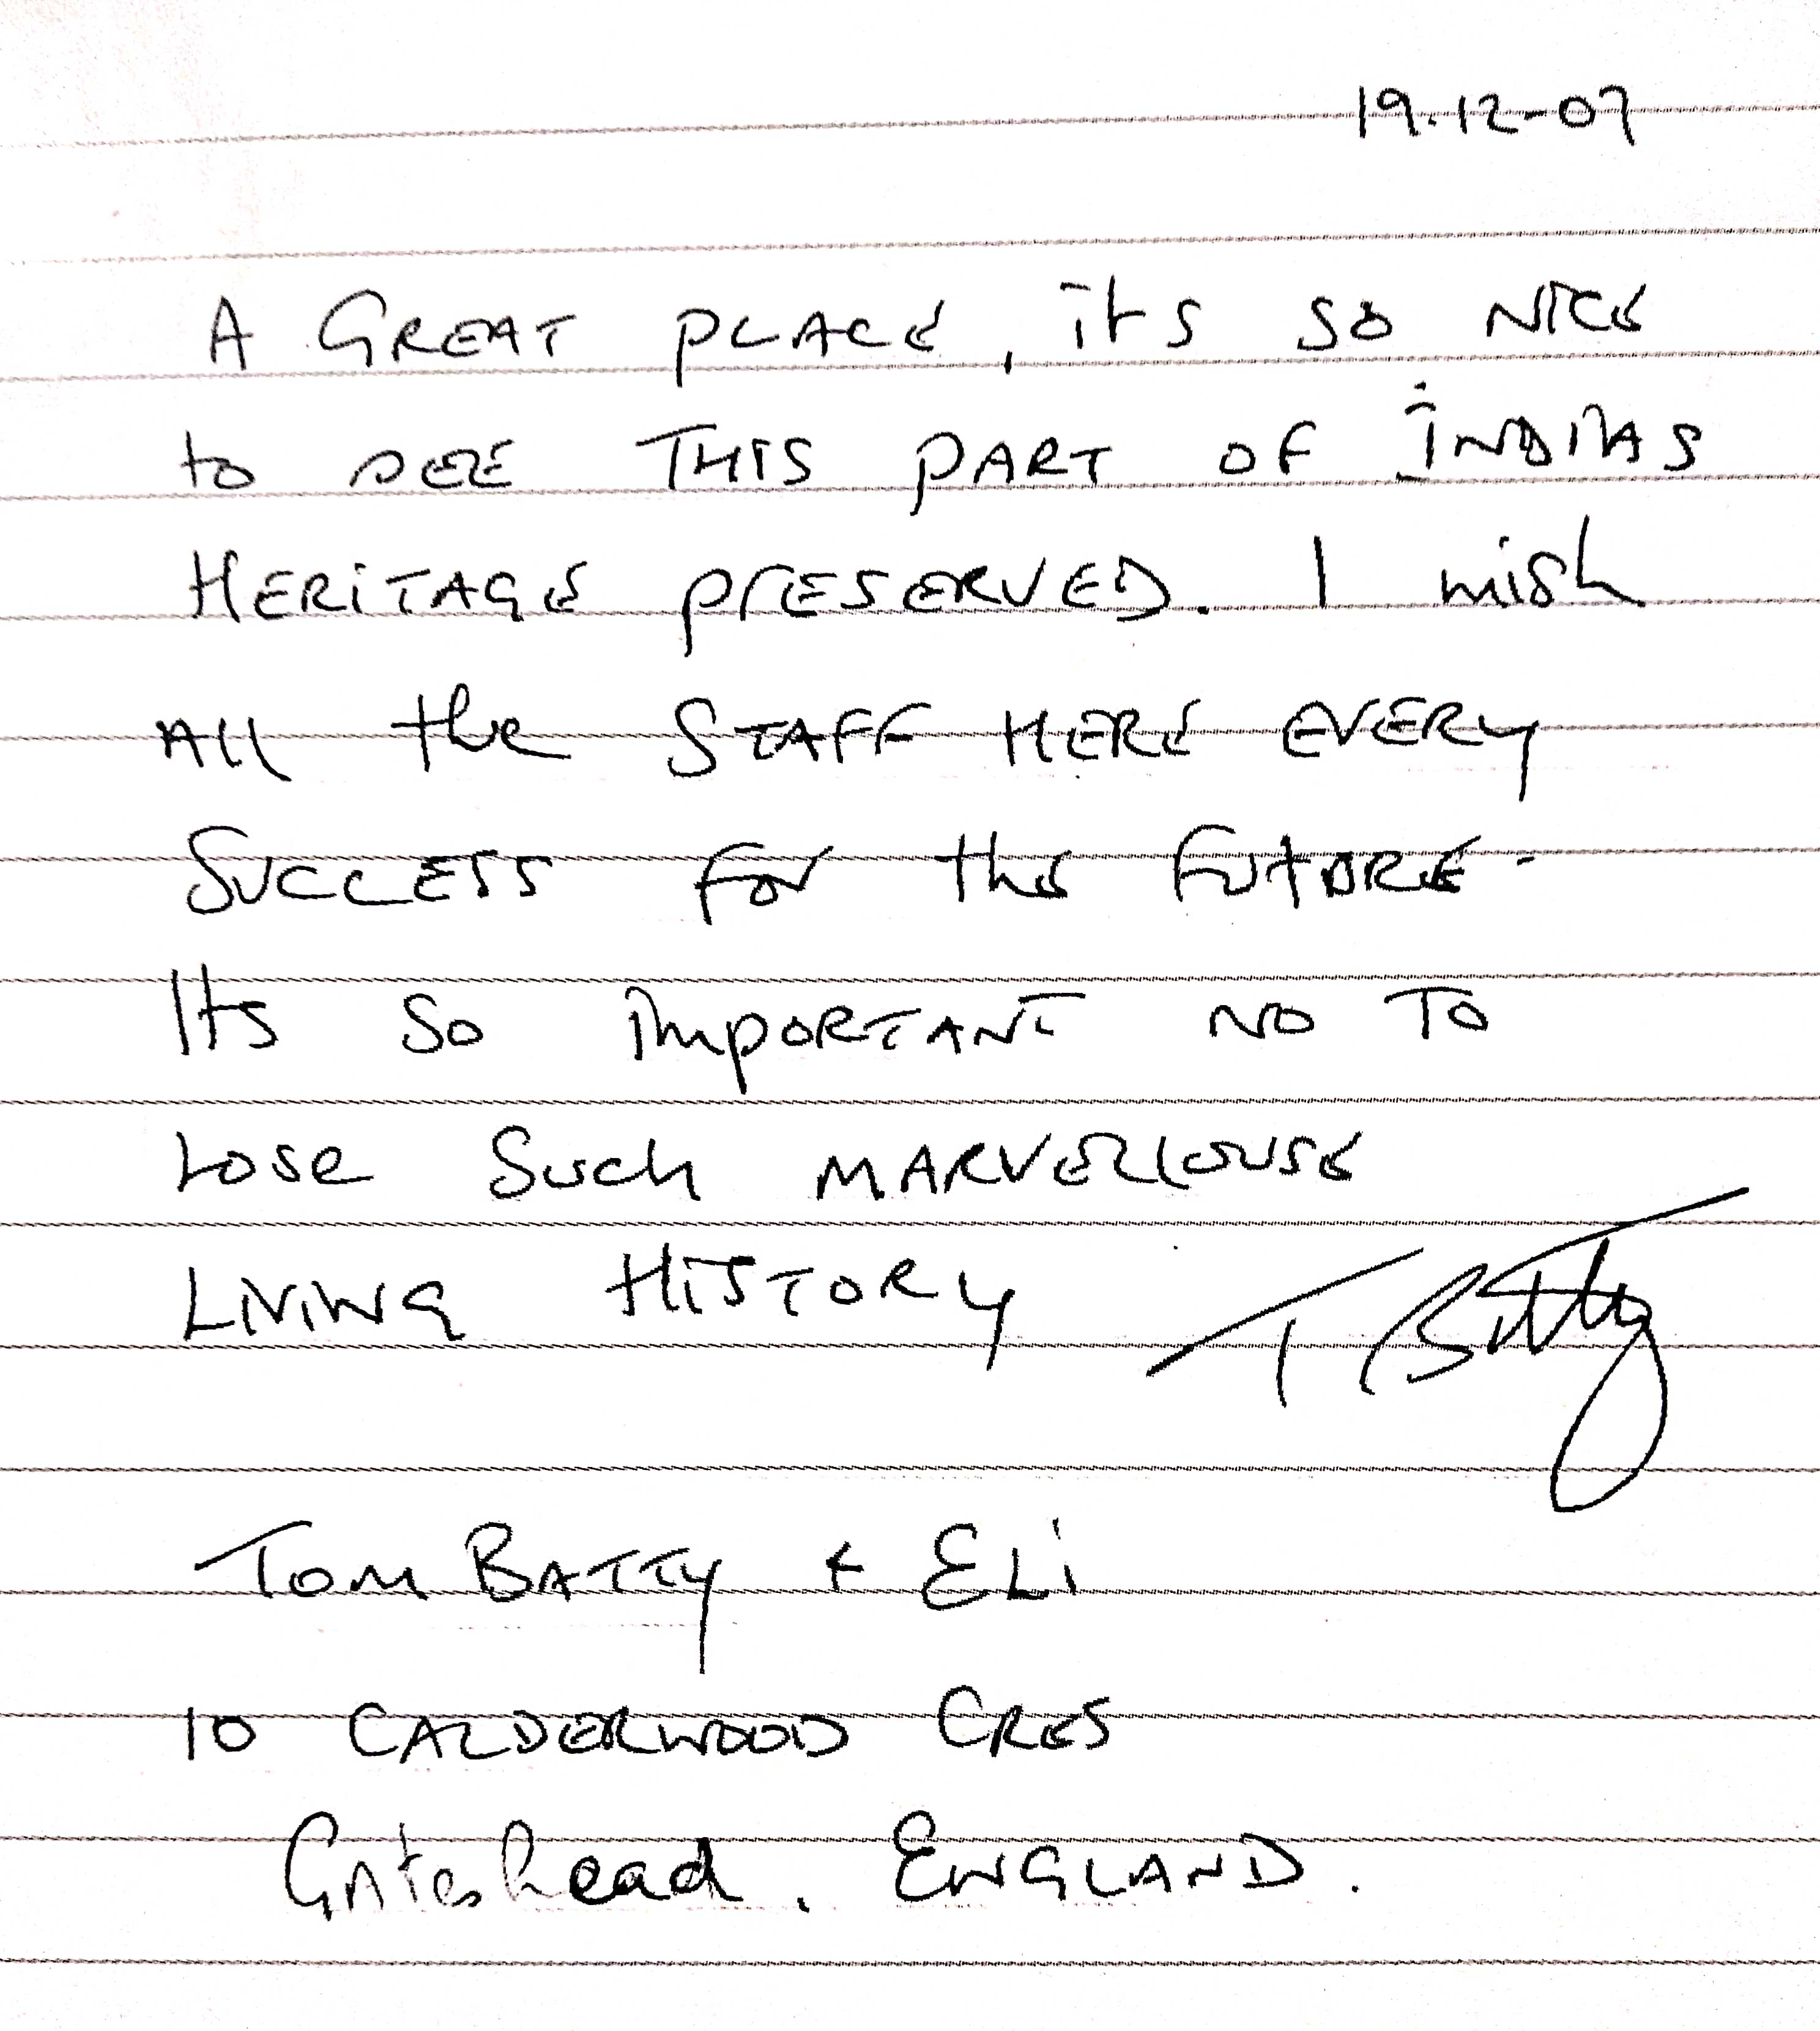 19.12-07
A GREAT PLACE, its so NICE
to SEE THIS PART OF INDIAS
HERITAGE PRESERVED. I wish
All the STAFF HERE EVERY
SUCCESS for the FUTURE.
Its So IMPORTANT NO TO
Lose Such MARVELLOUSE
LIVING HISTORY T Batty
Tom BATTY + ELi
10 CALDERWOOD CRES
Gateshead. ENGLAND.